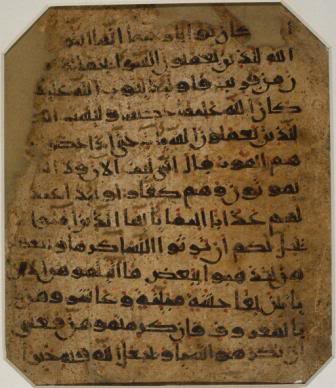 كان توابا رحيما انما ا
الله للذين يعملون السوء بجهلة
ن من قريب فاولئك يتوب الله عليهم
كان الله عليما حكيما وليست ا
للذين يعملون السيات حتى اذا حضر
هم الموت قال اني تبت الان ولا ا
يموتون وهم كفار اولئك اعتد
لهم عذابا اليما يايها الذين امنوا
يحل لكم ان ترثوا النسا كرها ولا تعضلو
هن لتذهبوا ببعض ما اتيتموهن الا ا
ياتين بفاحشة مبينة وعاشروهن
بالمعروف فان كرهتموهن فعسى
ان تكرهوا شيا ويجعل الله فيه خيرا